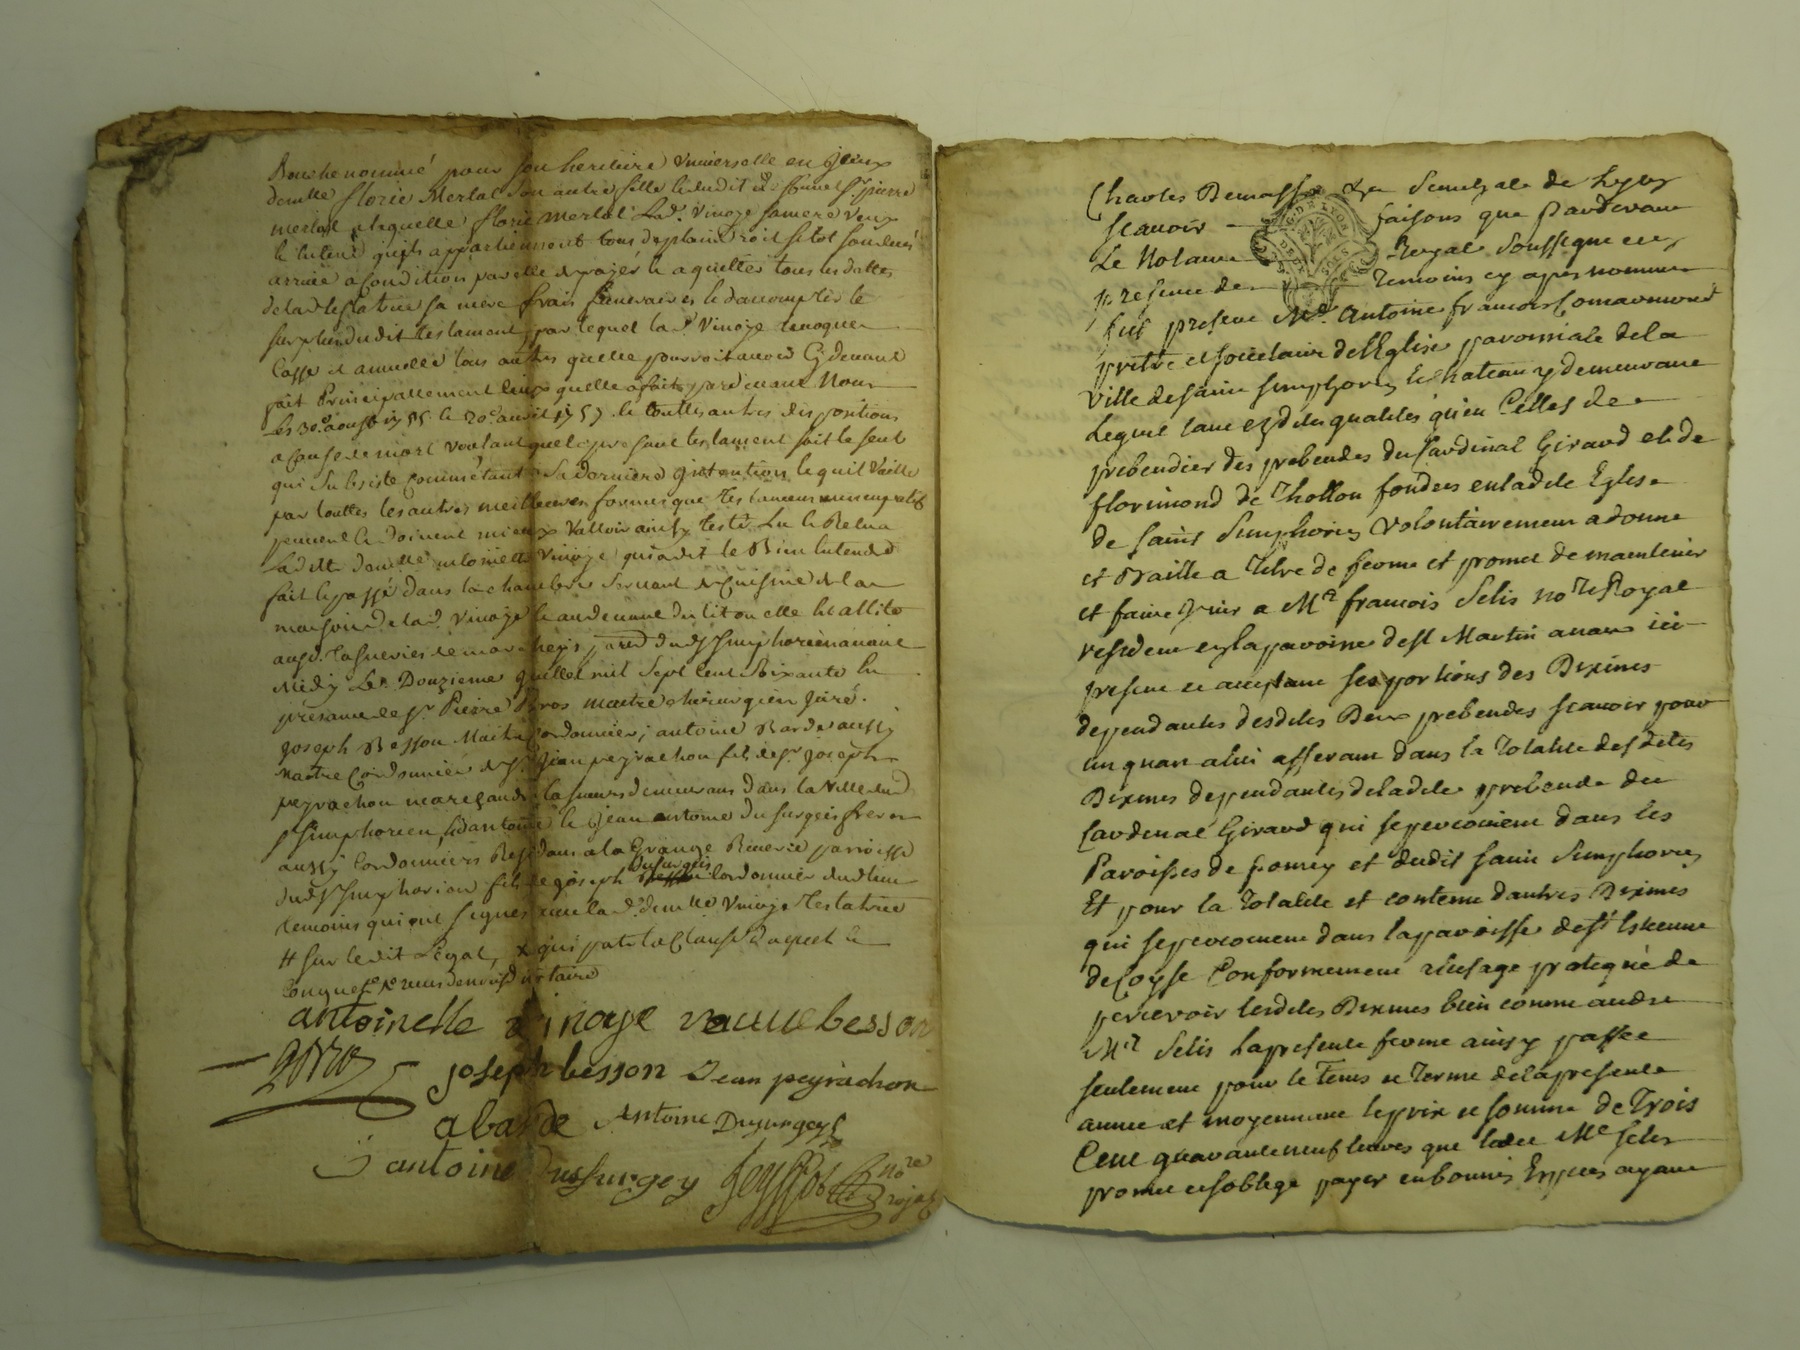 Bouche nommé pour son heritiere Universelle en Jceux
demlle florie Merlat Son autre fille ledudit d. Sr pierre
merlat a laquelle florie merlat Lad. Vinoye samere veux
le entend quils appartiennent tous deplain droit sitot son deces
arrivé a condition par elle depayér le aquitter tous les dettes
de lad. testatrice sa mere frais funeraires le daccomplir le
surplus dudit testament, par lequel lad. Vinoye revoque
Casse et annulle tous autres quelle pourroit avoir Cy devant
fait Principallement ceux quelle a fait pardevant Nous
les 30e. aoust 1755 le 20e. avril 1757 le touttes autres dispositions
a cause de mort voulant que le present testament soit le seul
qui Subsiste comme étant Sa derniere intention le quil Vaille
par touttes les autres meilleures formes que testament nuncupatif
peuvent le doivent mieux Valloir ainsy testé Lu le Relu a
Ladite demlle antoinette Vinoye qui a dit le Bien Entendre
fait le passé dans la chambre Servant de Cuisine de la
maison de lad. Vinoye le au devant du lit ou elle
midy Le Douzieme juillet mil Sept Cent Soixante
presance de Sr. Pierre Gros maitre chirurgien juré.
Joseph Besson Maitre Cordonnier, antoine Barde aussy
maitre Cordonnier de Sr. jean peyrachon fils de Sr. joseph
peyrachon demeurans dans la Ville dud.
St Simphorien, antoine le jean antoine Dusurgeis freres
aussy Cordonniers a la Grange parroisse
dud. St Simphorien fils de joseph Dusurgeis Cordonnier dud. lieu
temoins qui ont signés avec lad. demlle Vinoye Testatrice
# sur le dit Légat,
antoinette Vinaye besson
gros
joseph besson Jean peyrachon
a barde Antoine Dusurgeys
J antoine Dusurgey nore
royal
Charles Demasso Senechal de Lyon
scavoir faisons que Pardevant
Le Notaire Royal Soussigné et en
presence des temoins cy apres nommes
fut present Me. Antoine francois
pretre et societaire de lEglise parroissiale de la
ville de saint simphorien le chateau y demeurant
Lequel tant ezdites qualités quen Celles de
prebendier des prebendes du Cardinal Girard et de
florimond de Thollon fondees en ladite Eglise
de saint Simphorien volontairement a donné
et Baille a Titre de ferme et promet de maintenir
et faire jouir a Me francois Selis nore Royal
resident en la parroisse de st Martin anaux ici
present et acceptant ses portions des Dixmes
dependantes desdites Deux prebendes scavoir pour
un quart a lui afferant dans la Totalité desdites
Dixmes dependantes de ladite prebende du
Cardinal Girard qui se percoivent dans les
Paroisses de pomey et dudit saint Simphorien
Et pour la Totalité et contenu dautres Dixmes
qui se percoivent dans la parroisse de st Etienne
de Coyse Conformement a lusage pratiqué de
percevoir lesdites Dixmes bien connu audit
Me Selis la presente ferme ainsy passée
seulement pour le tems et terme de la presente
annee et moyennant le prix et somme de Trois
Cent quarante neuf livres que ledit Me Selis
promet et soblige payer en bonnes Especes ayant